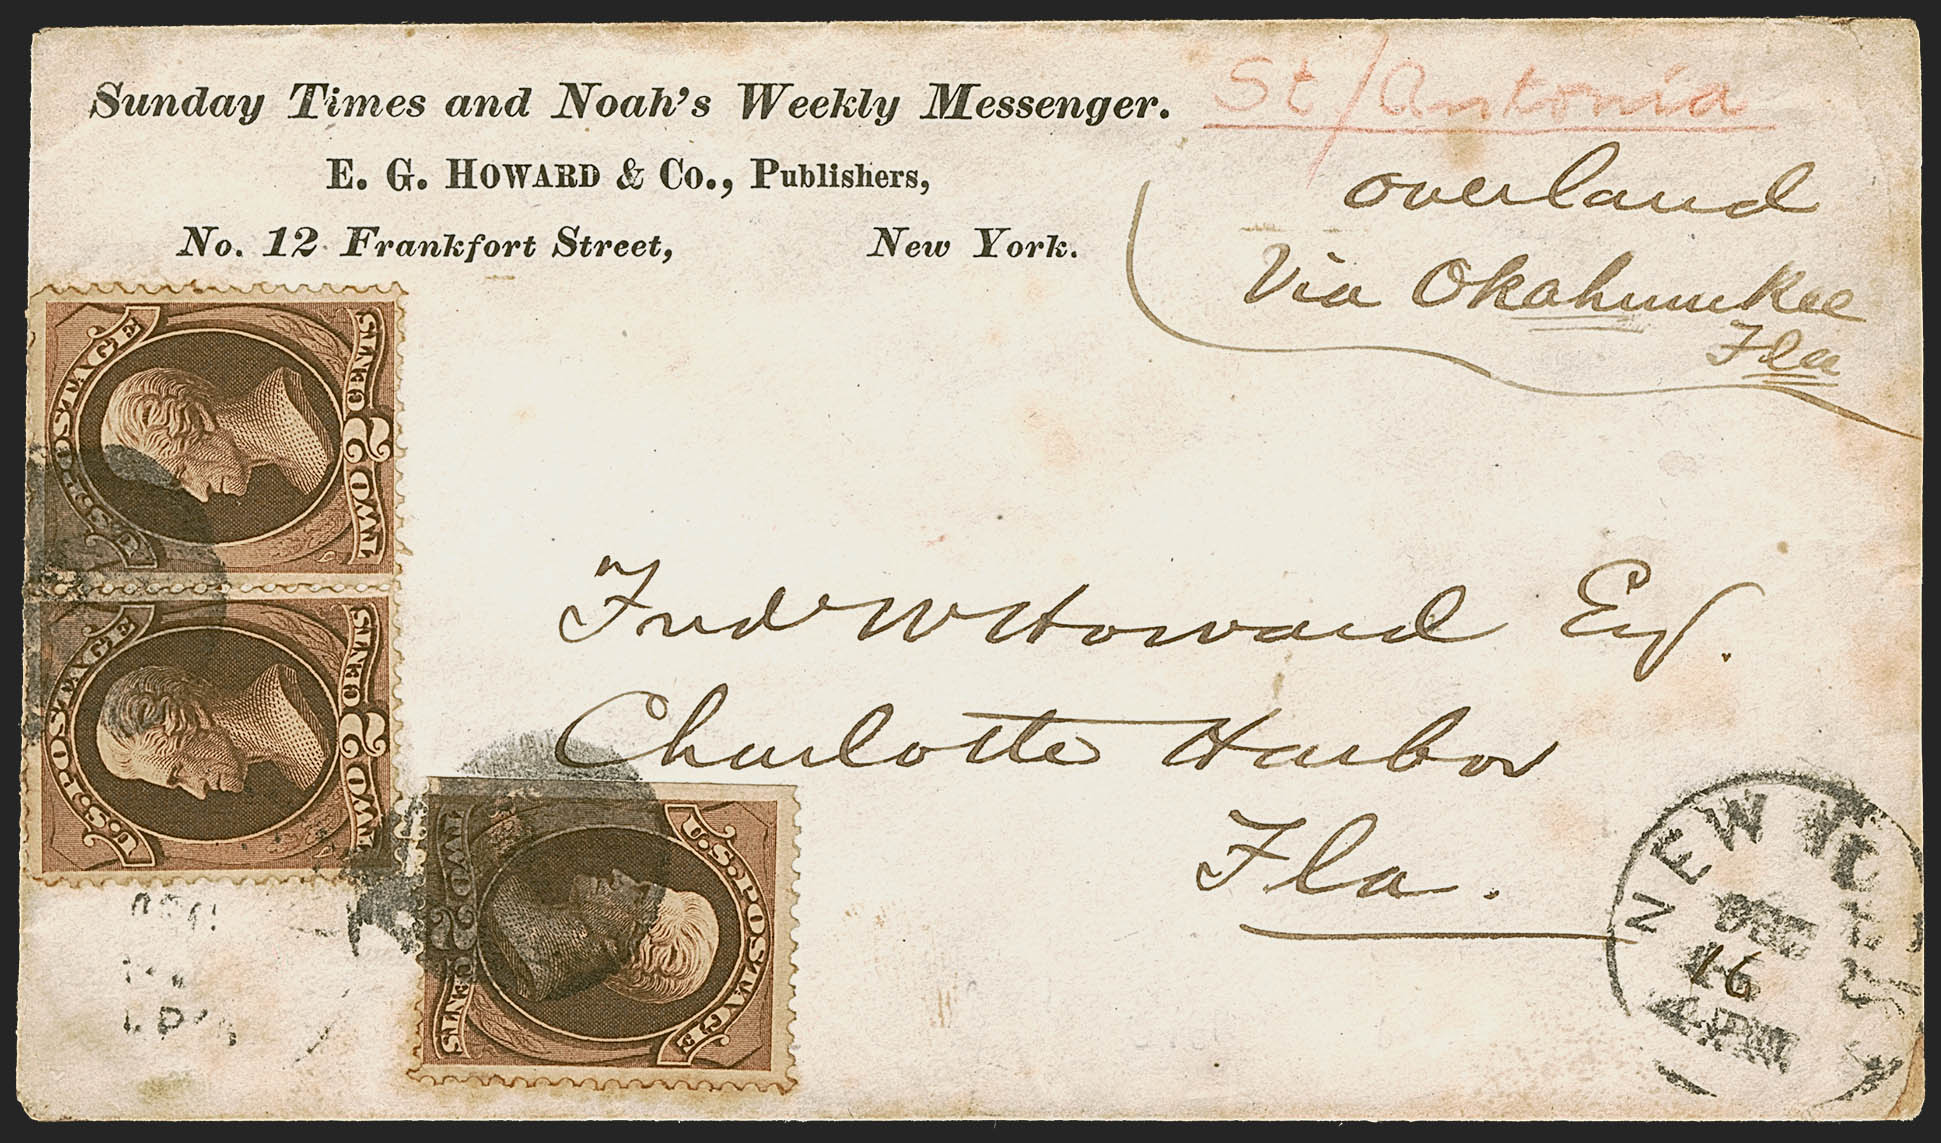 Sunday Times and Noah's Weekly Messenger.
E. G. HOWARD & Co., Publishers,
No. 12 Frankfort Street, New York.
St/Antonia
overland
Via Okahumkee
Fla
U.S. POSTAGE
TWO 2 CENTS
U.S. POSTAGE
TWO 2 CENTS
Fred W Howard Esq.
Charlotte Harbor
Fla.
U.S. POSTAGE
TWO 2 CENTS
NEW YORK
DEC
16